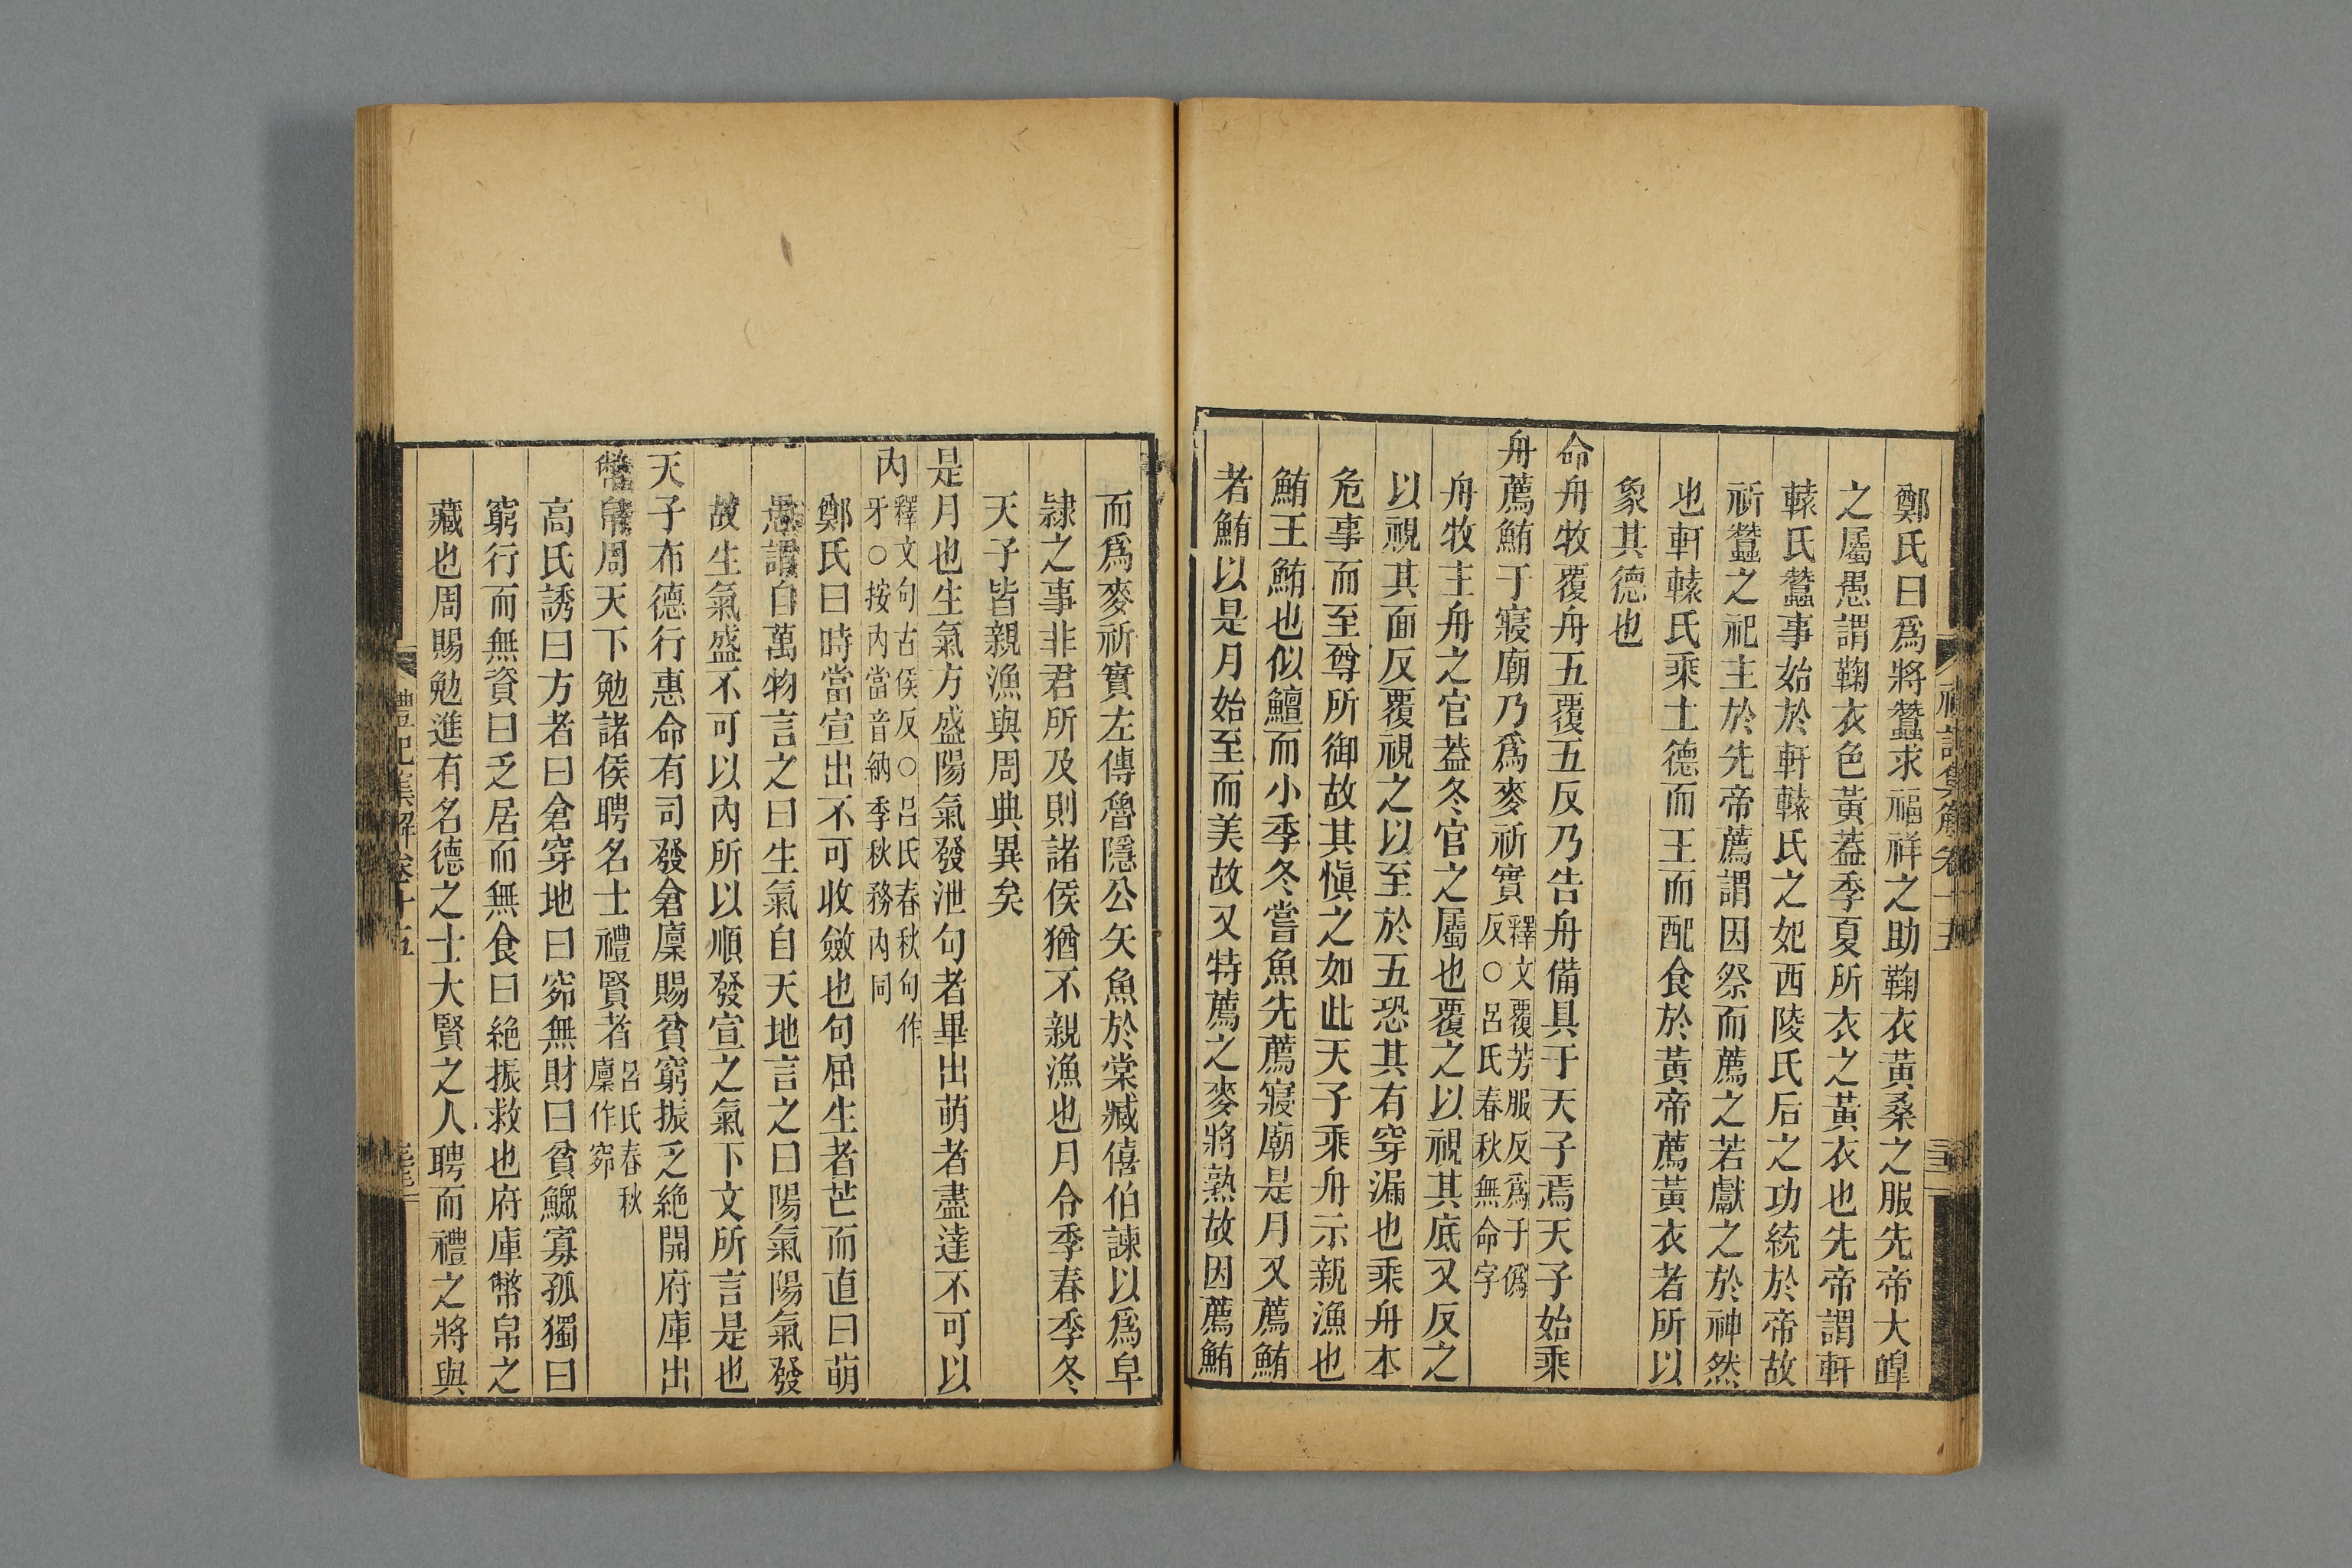 鄭氏曰爲將蠶求福祥之助鞠衣黃桑之服先帝大皥
之屬愚謂鞠衣色黃葢季夏所衣之黃衣也先帝謂軒
轅氏蠶事始於軒轅氏之妃西陵氏后之功統於帝故
祈蠶之祀主於先帝薦謂因祭而薦之若獻之於神然
也軒轅氏乘土德而王而配食於黃帝薦黃衣者所以
象其德也
命舟牧覆舟五覆五反乃告舟備具于天子焉天子始乘
舟薦鮪于寢廟乃爲麥祈實釋文覆芳服反爲于僞反○呂氏春秋無命字
舟牧主舟之官葢冬官之屬也覆之以視其底又反之
以視其面反覆視之以至於五恐其有穿漏也乘舟本
危事而至尊所御故其愼之如此天子乘舟示親漁也
鮪王鮪也似鱣而小季冬嘗魚先薦寢廟是月又薦鮪
者鮪以是月始至而美故又特薦之麥將熟故因薦鮪
而爲麥祈實左傳魯隱公矢魚於棠臧僖伯諫以爲皁
隸之事非君所及則諸侯猶不親漁也月令季春季冬
天子皆親漁與周典異矣
是月也生氣方盛陽氣發泄句者畢出萌者盡達不可以
內釋文句古侯反○呂氏春秋句作牙○按內當音納季秋務內同
鄭氏曰時當宣出不可收斂也句屈生者芒而直曰萌
愚謂自萬物言之曰生氣自天地言之曰陽氣陽氣發
故生氣盛不可以內所以順發宣之氣下文所言是也
天子布德行惠命有司發倉廩賜貧窮振乏絕開府庫出
幣帛周天下勉諸侯聘名士禮賢者呂氏春秋廩作窌
高氏誘曰方者曰倉穿地曰窌無財曰貧鰥寡孤獨曰
窮行而無資曰乏居而無食曰絕振救也府庫幣帛之
藏也周賜勉進有名德之士大賢之人聘而禮之將與
禮記集解卷十五